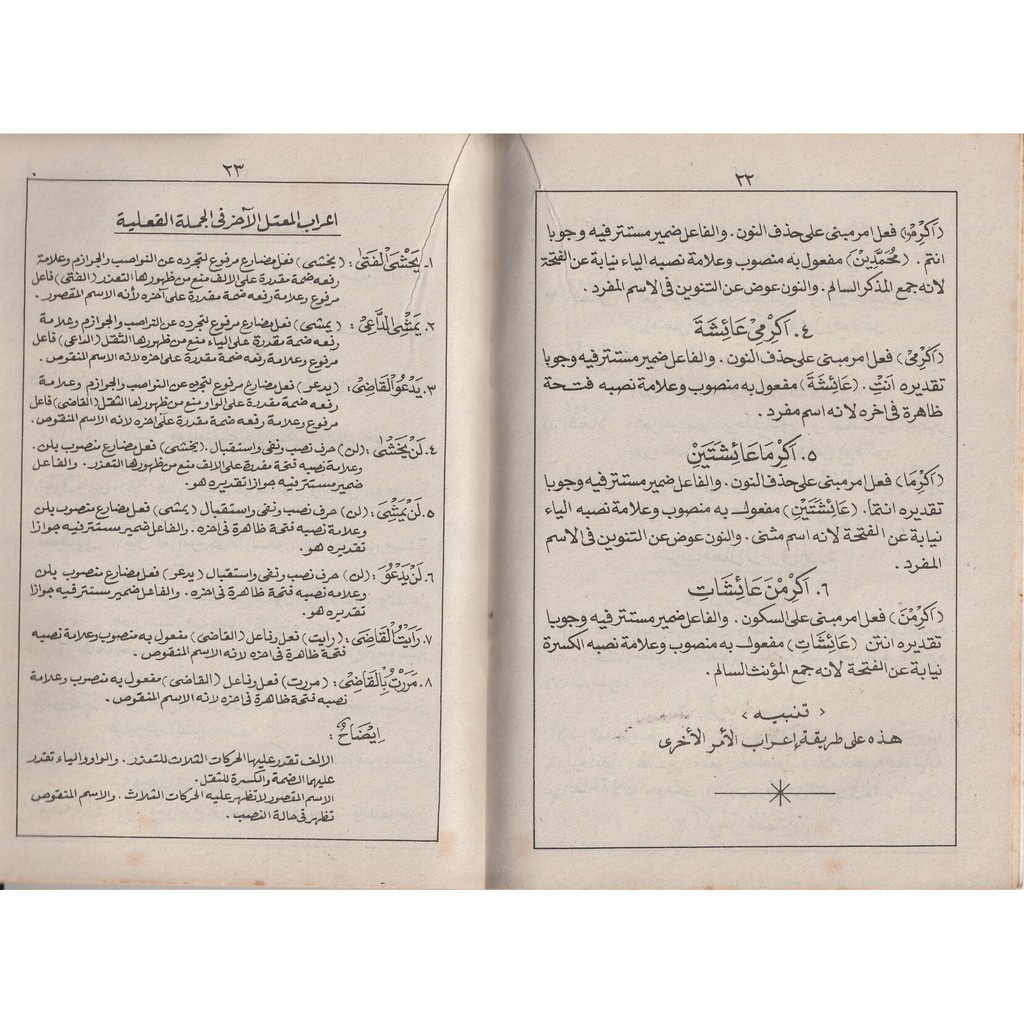 ٢٢
(اَكْرِمُوا) فعل امر مبنى على حذف النون . والفاعل ضمير مستتر فيه وجوبا
انتم . (مُحَمَّدِيْنَ) مفعول به منصوب وعلامة نصبه الياء نيابة عن الفتحة
لانه جمع المذكر السالم . والنون عوض عن التنوين فى الاسم المفرد .
٤. اَكْرِمِيْ عَائِشَةَ
(اَكْرِمِيْ) فعل امر مبنى على حذف النون . والفاعل ضمير مستتر فيه وجوبا
تقديره اَنْتِ . (عَائِشَةَ) مفعول به منصوب وعلامة نصبه فتحة
ظاهرة فى اخره لانه اسم مفرد .
٥. اَكْرِمَا عَائِشَتَيْنِ
(اَكْرِمَا) فعل امر مبنى على حذف النون . والفاعل ضمير مستتر فيه وجوبا
تقديره انتما. (عَائِشَتَيْنِ) مفعول به منصوب وعلامة نصبه الياء
نيابة عن الفتحة لانه اسم مثنى . والنون عوض عن التنوين فى الاسم
المفرد .
٦. اَكْرِمْنَ عَائِشَاتِ
(اَكْرِمْنَ) فعل امر مبنى على السكون . والفاعل ضمير مستتر فيه وجوبا
تقديره انتن (عَائِشَاتِ) مفعول به منصوب وعلامة نصبه الكسرة
نيابة عن الفتحة لانه جمع المؤنث السالم .
< تنبيه >
هذه على طريقة إعراب الأمر الأخرى
٢٣
اعراب المعتل الآخر فى الجملة الفعلية
١- يَخْشَى الْفَتَى : (يخشى) فعل مضارع مرفوع لتجرده عن النواصب والجوازم وعلامة
رفعه ضمة مقدرة على الالف منع من ظهورها التعذر (الفتى) فاعل
مرفوع وعلامة رفعه ضمة مقدرة على آخره لأنه الاسم المقصور .
٢. يَمْشِى الدَّاعِىْ : (يمشى) فعل مضارع مرفوع لتجرده عن النواصب والجوازم وعلامة
رفعه ضمة مقدرة على الياء منع من ظهورها الثقل (الداعى) فاعل
مرفوع وعلامة رفعه ضمة مقدرة على اخره لانه الاسم المنقوص .
٣. يَدْعُو الْقَاضِىْ : (يدعو) فعل مضارع مرفوع لتجرده عن النواصب والجوازم وعلامة
رفعه ضمة مقدرة على الواو منع من ظهورها الثقل (القاضى) فاعل
مرفوع وعلامة رفعه ضمة مقدرة على آخره لانه الاسم المنقوص .
٤. لَنْ يَخْشَى : (لن) حرف نصب ونفى واستقبال . (يخشى) فعل مضارع منصوب بلن .
وعلامة نصبه فتحة مقدرة على الالف منع من ظهورها التعذر . والفاعل
ضمير مستتر فيه جوازا تقديره هو .
٥. لَنْ يَمْشِىَ : (لن) حرف نصب ونفى واستقبال (يمشى) فعل مضارع منصوب بلن
وعلامة نصبه فتحة ظاهرة فى اخره . والفاعل ضمير مستتر فيه جوازا
تقديره هو .
٦. لَنْ يَدْعُوَ : (لن) حرف نصب ونفى واستقبال (يدعو) فعل مضارع منصوب بلن
وعلامة نصبه فتحة ظاهرة فى اخره . والفاعل ضمير مستتر فيه جوازا
تقديره هو .
٧. رَاَيْتُ الْقَاضِىَ : (رايت) فعل وفاعل (القاضى) مفعول به منصوب وعلامة نصبه
فتحة ظاهرة فى اخره لانه الاسم المنقوص .
٨. مَرَرْتُ بِالْقَاضِىْ : (مررت) فعل وفاعل (القاضى) مفعول به منصوب وعلامة
نصبه فتحة ظاهرة فى اخره لانه الاسم المنقوص .
اِيْضَاحٌ :
الالف تقدر عليها الحركات الثلاث للتعذر . والواو والياء تقدر
عليهما الضمة والكسرة للثقل .
الاسم المقصور لا تظهر عليه الحركات الثلاث . والاسم المنقوص
تظهر فى حالة النصب .